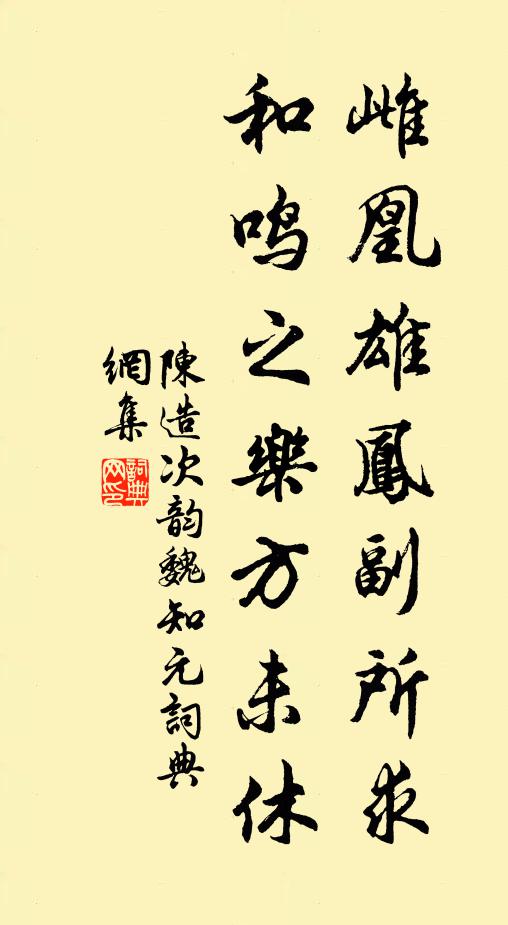 雌凰雄鳳副所求
和鳴之樂方未休
陳造次韵魏知元詞典
網集
詞典
网印